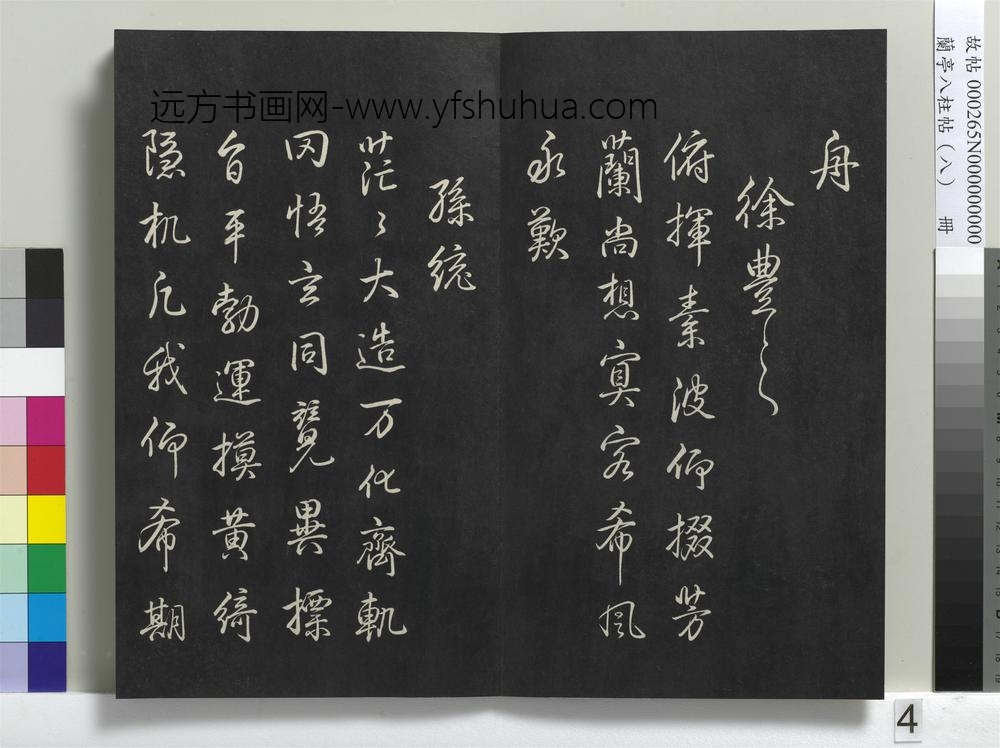 舟
徐豊之
俯揮素波仰掇芳
蘭尚想㝠客希風
永歎
孫統
茫〻大造万化齊軌
罔悟玄同覽異摽
自平勃運摸黄綺
隐机凡我仰希期
远方书画网-www.yfshuhua.com
故帖 000265N000000000
蘭亭八柱帖（八） 冊
4